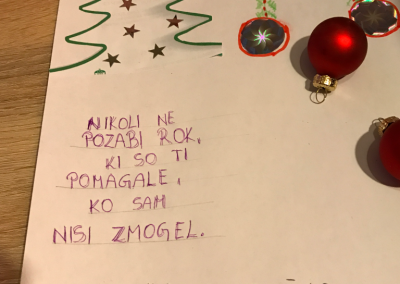 NIKOLI NE
POZABI ROK,
KI SO TI
POMAGALE,
KO SAM
NISI ZMOGEL.